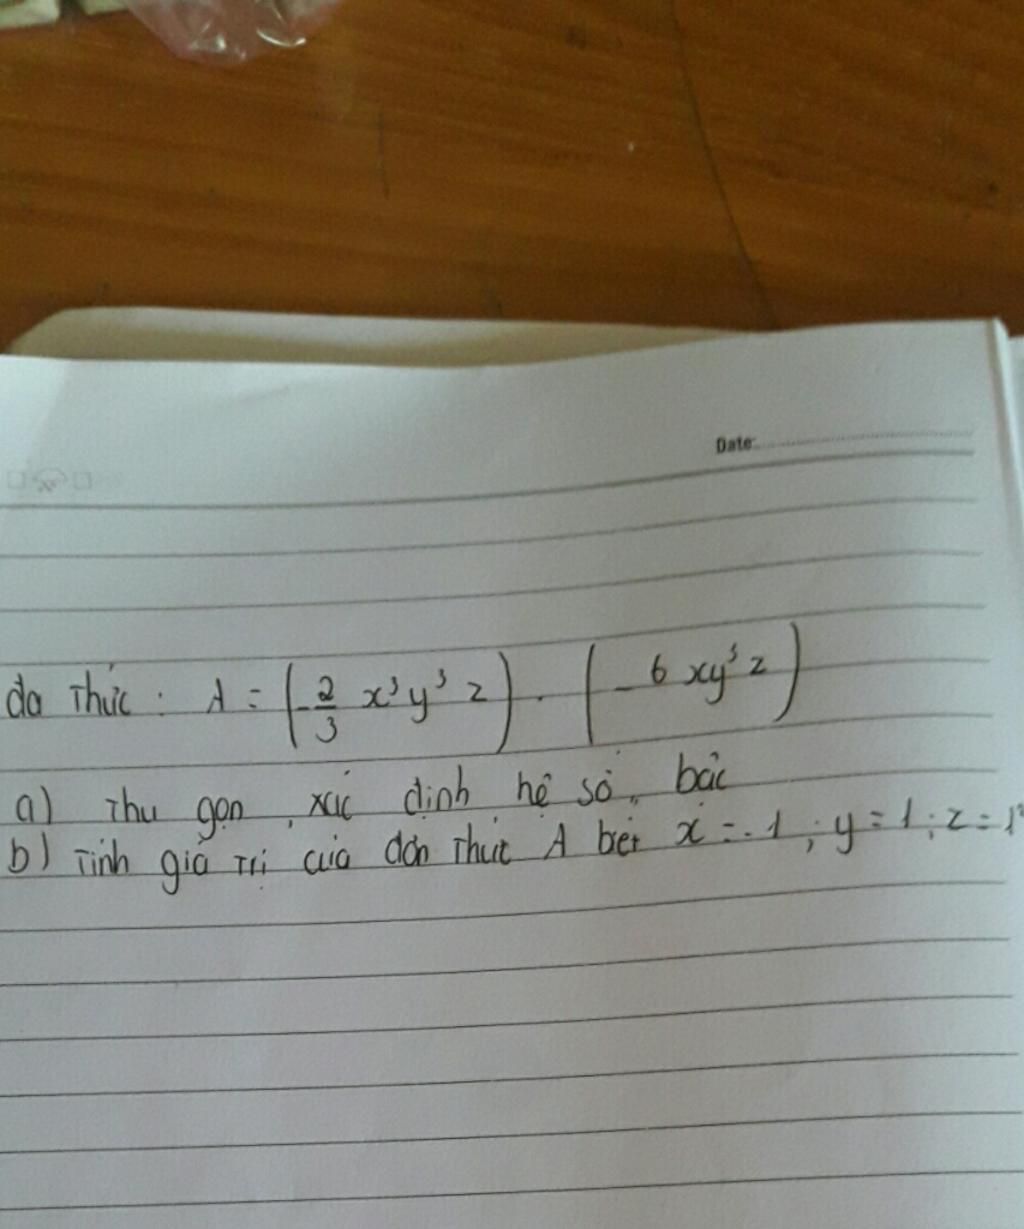 Date:
đa thức : A = (-2/3 x³y³ z) . (-6 xy³ z)
a) Thu gọn, xác định hệ số, bậc
b) Tính giá trị của đơn thức A biết x = -1 ; y = 1 ; z = 1